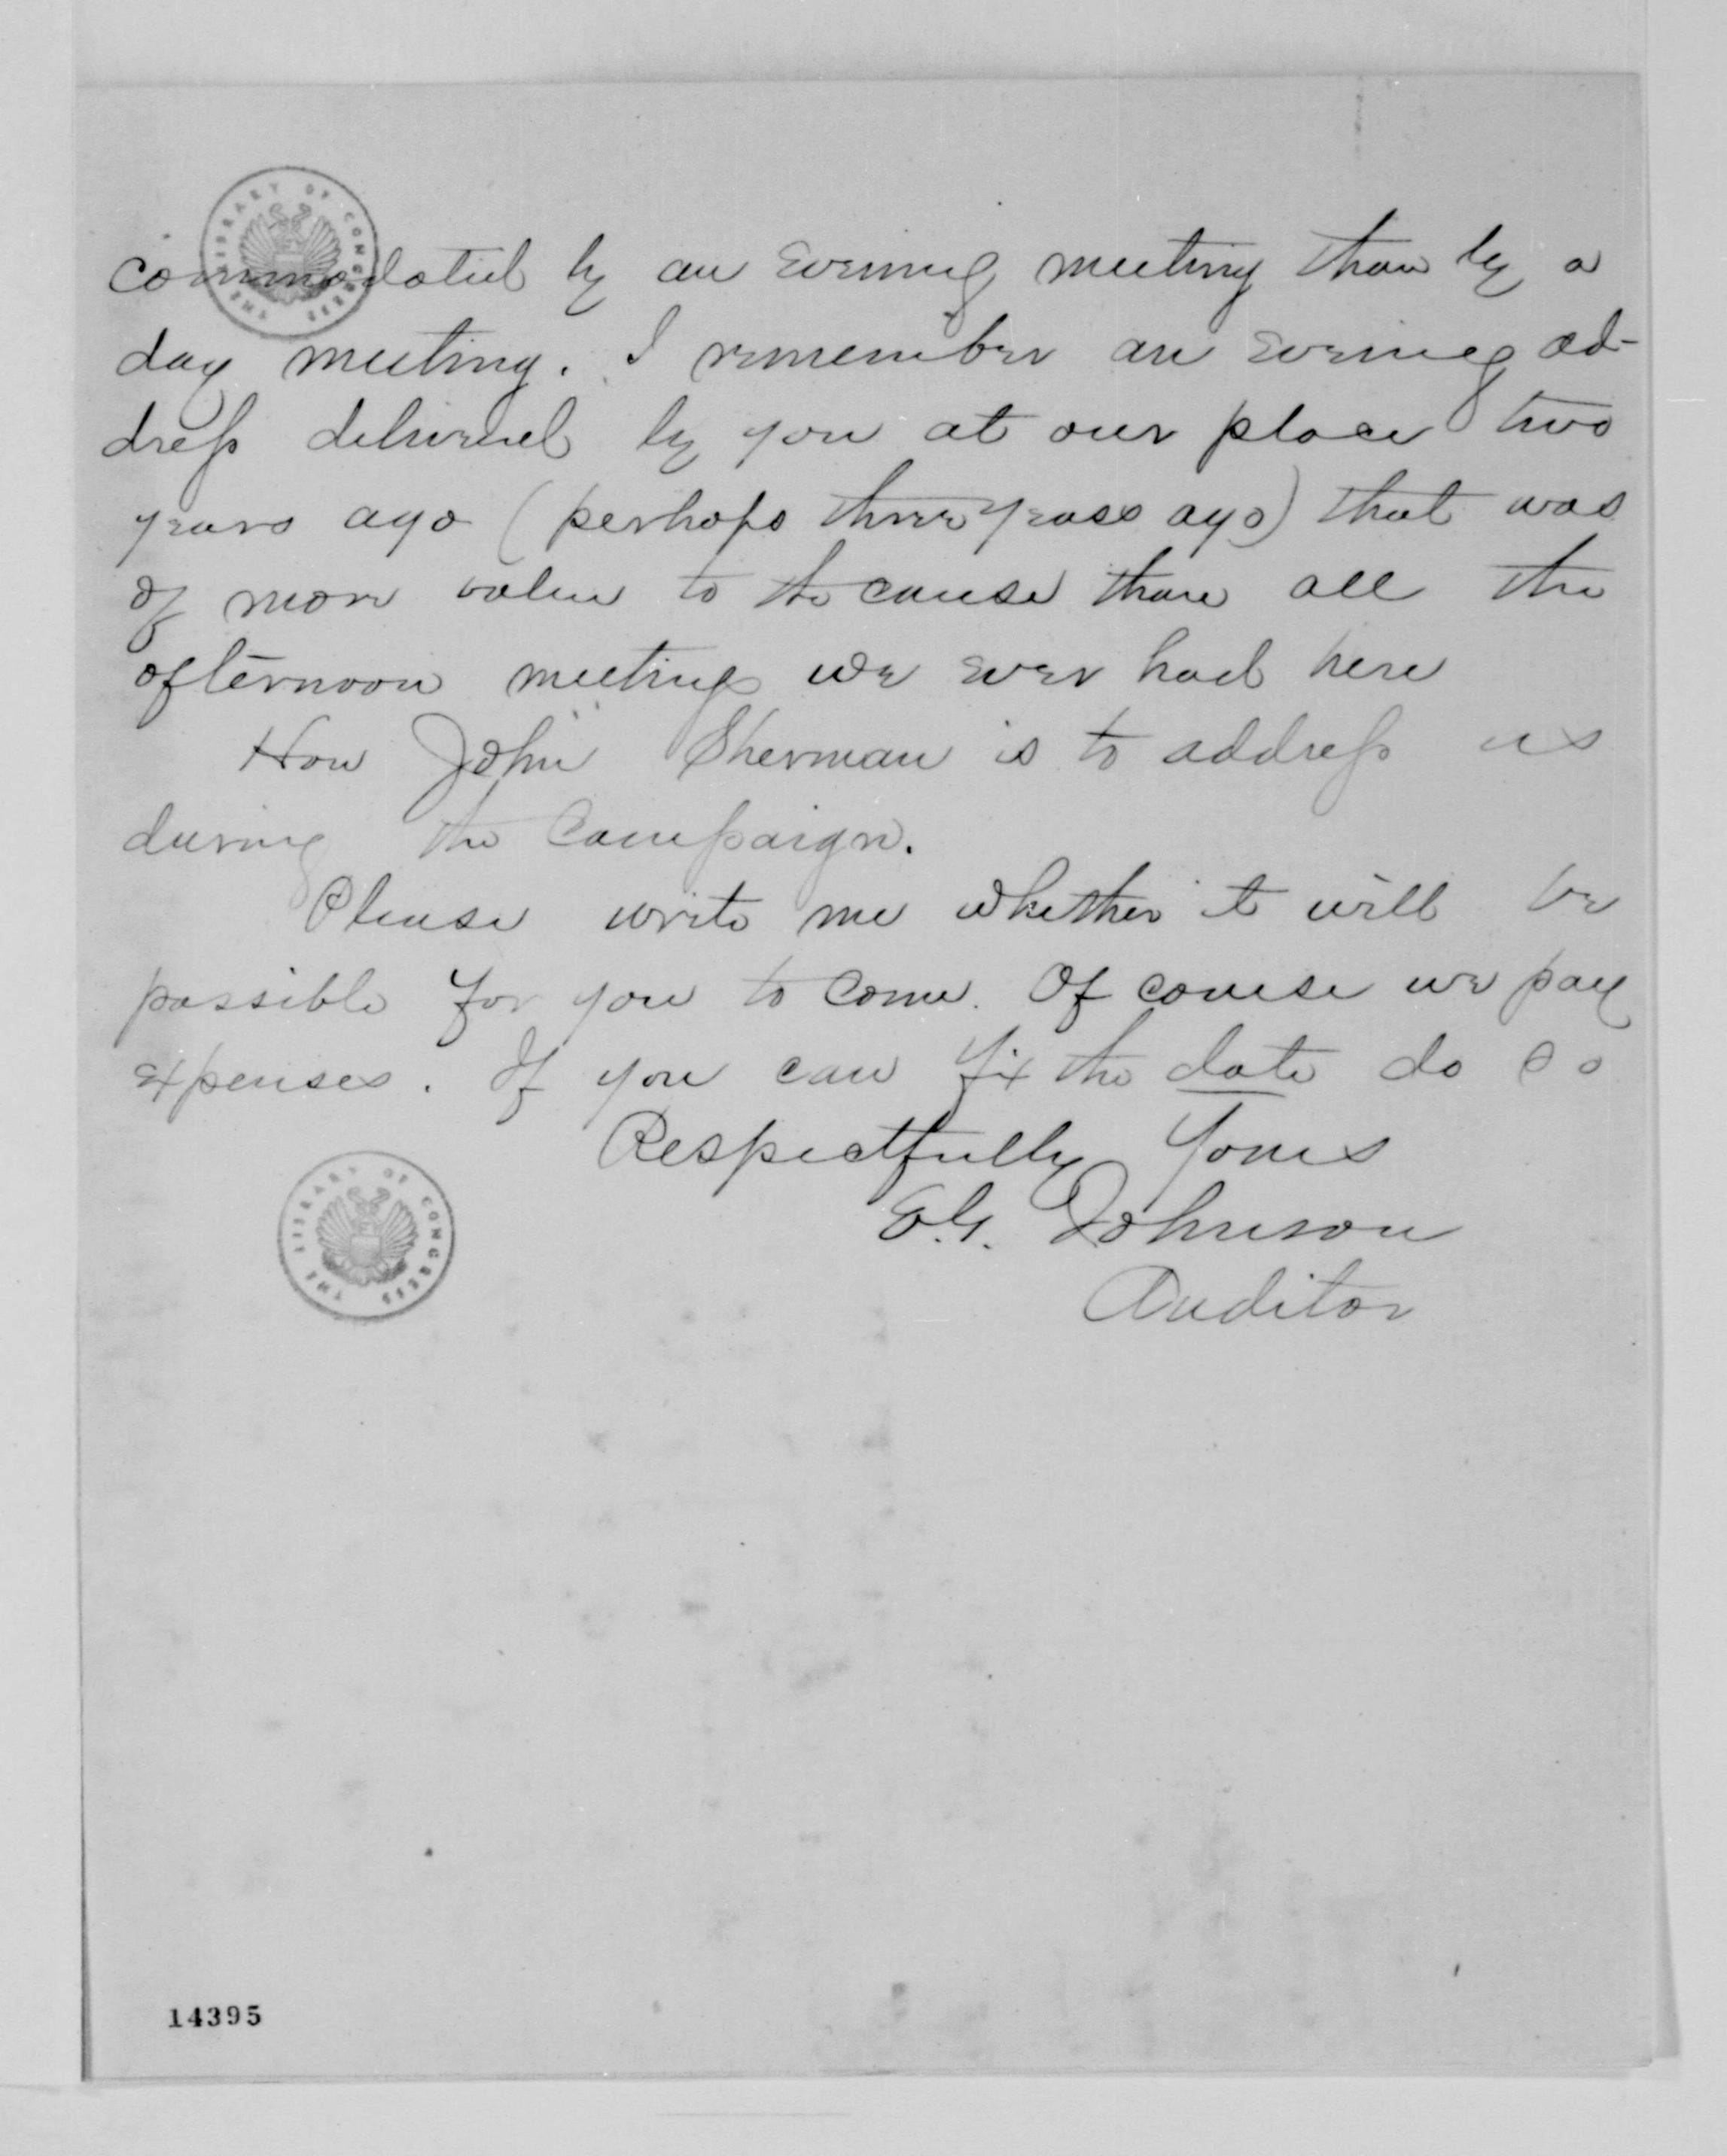 THE LIBRARY OF CONGRESS
commodated by an evening meeting than by a
day meeting. I remember an evening ad-
dress delivered by you at our place two
years ago (perhaps three years ago) that was
of more value to the cause than all the
afternoon meetings we ever had here
Hon John Sherman is to address us
during the Campaign.
Please write me whether it will be
possible for you to come. Of course we pay
expenses. If you can fix the date do so
Respectfully Yours
E.G. Johnson
Auditor
THE LIBRARY OF CONGRESS
14395